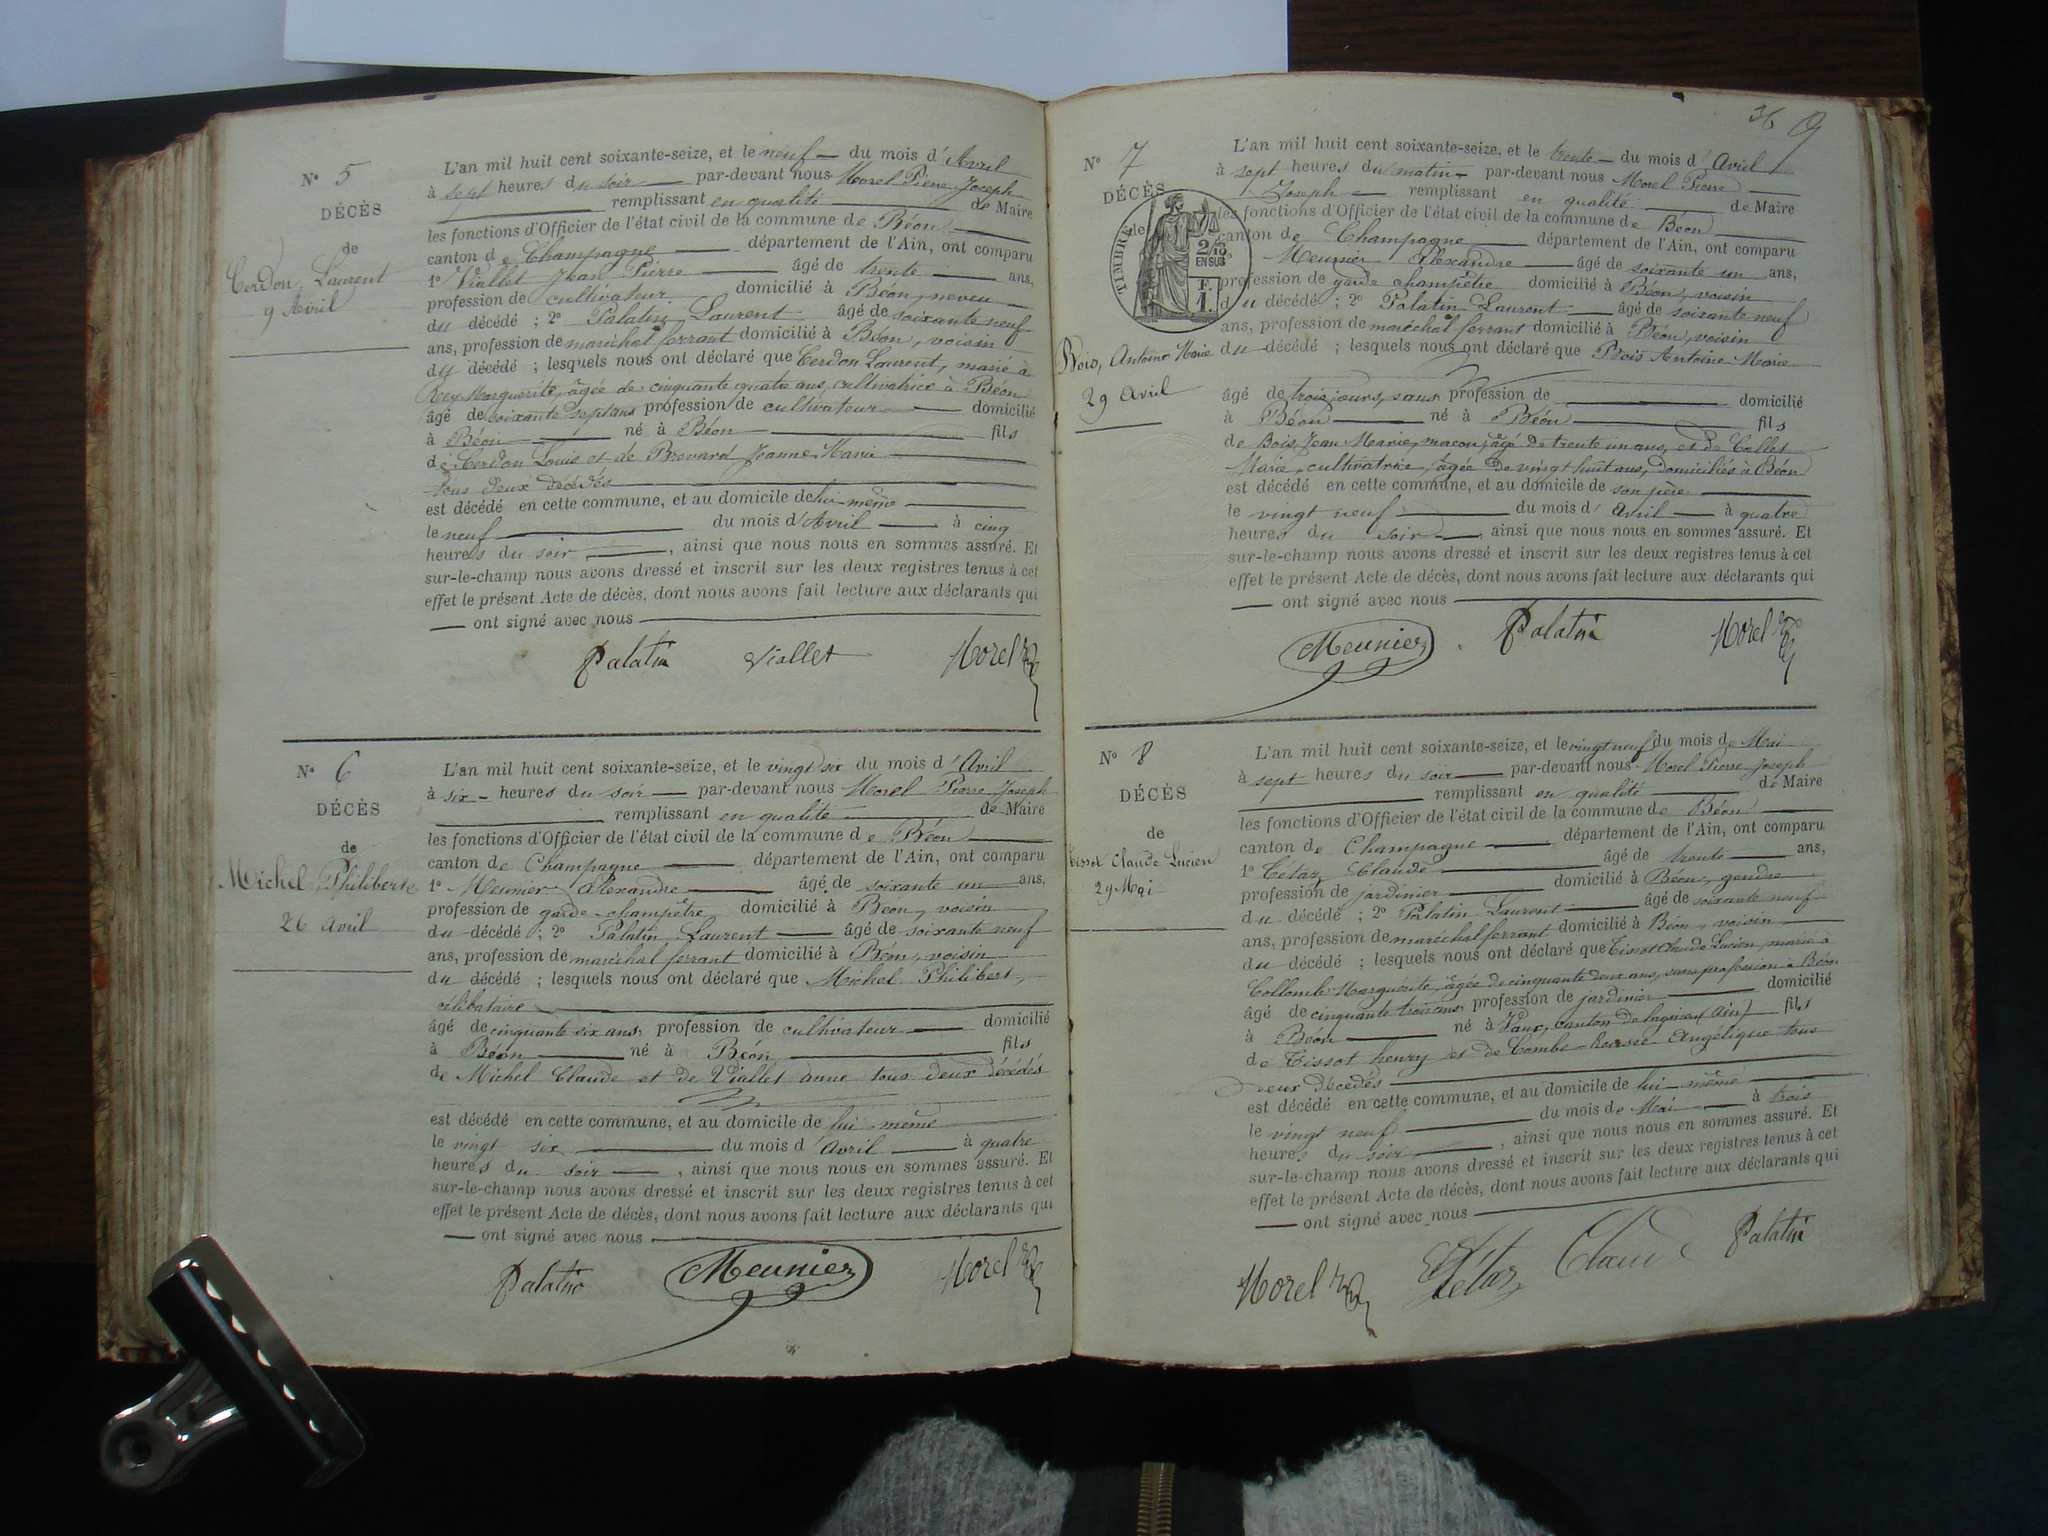 N° 5
DÉCÈS
de
Cerdon Laurent
9 Avril
L'an mil huit cent soixante-seize, et le neuf du mois d'Avril
à sept heures du soir par-devant nous Morel Pierre Joseph
remplissant en qualité de Maire
les fonctions d'Officier de l'état civil de la commune de Béon
canton de Champagne département de l'Ain, ont comparu
1° Viallet Jean Pierre âgé de trente ans,
profession de cultivateur domicilié à Béon, neveu
du décédé ; 2° Palatin Laurent âgé de soixante neuf
ans, profession de maréchal ferrant domicilié à Béon, voisin
du décédé ; lesquels nous ont déclaré que Cerdon Laurent, marié à
Rey Marguerite, âgée de cinquante quatre ans, cultivatrice à Béon
âgé de soixante sept ans profession de cultivateur domicilié
à Béon né à Béon fils
de Cerdon Louis et de Brevard Jeanne Marie
tous deux décédés
est décédé en cette commune, et au domicile de lui-même
le neuf du mois d'Avril à cinq
heures du soir, ainsi que nous nous en sommes assuré. Et
sur-le-champ nous avons dressé et inscrit sur les deux registres tenus à cet
effet le présent Acte de décès, dont nous avons fait lecture aux déclarants qui
ont signé avec nous
Palatin Viallet Morel
N° 6
DÉCÈS
de
Michel Philibert
26 Avril
L'an mil huit cent soixante-seize, et le vingt six du mois d'Avril
à six heures du soir par-devant nous Morel Pierre Joseph
remplissant en qualité de Maire
les fonctions d'Officier de l'état civil de la commune de Béon
canton de Champagne département de l'Ain, ont comparu
1° Meunier Alexandre âgé de soixante un ans,
profession de garde champêtre domicilié à Béon, voisin
du décédé ; 2° Palatin Laurent âgé de soixante neuf
ans, profession de maréchal ferrant domicilié à Béon, voisin
du décédé ; lesquels nous ont déclaré que Michel Philibert,
célibataire
âgé de cinquante six ans, profession de cultivateur domicilié
à Béon né à Béon fils
de Michel Claude et de Viallet anne tous deux décédés
est décédé en cette commune, et au domicile de lui même
le vingt six du mois d'Avril à quatre
heures du soir, ainsi que nous nous en sommes assuré. Et
sur-le-champ nous avons dressé et inscrit sur les deux registres tenus à cet
effet le présent Acte de décès, dont nous avons fait lecture aux déclarants qui
ont signé avec nous
Palatin Meunier Morel
36 9
N° 7
DÉCÈS
de
TIMBRE
2/10 EN SUS
F. 1.
Bois, Antoine Marie
29 Avril
L'an mil huit cent soixante-seize, et le trente du mois d'Avril
à sept heures du matin par-devant nous Morel Pierre
Joseph remplissant en qualité de Maire
les fonctions d'Officier de l'état civil de la commune de Béon
canton de Champagne département de l'Ain, ont comparu
Meunier Alexandre âgé de soixante un ans,
profession de garde champêtre domicilié à Béon, voisin
du décédé ; 2° Palatin Laurent âgé de soixante neuf
ans, profession de maréchal ferrant domicilié à Béon, voisin
du décédé ; lesquels nous ont déclaré que Bois Antoine Marie
âgé de trois jours, sans profession de domicilié
à Béon né à Béon fils
de Bois Jean Marie, maçon, âgé de trente un ans, et de Collet
Marie, cultivatrice, âgée de vingt huit ans, domiciliés à Béon
est décédé en cette commune, et au domicile de son père
le vingt neuf du mois d'Avril à quatre
heures du soir, ainsi que nous nous en sommes assuré. Et
sur-le-champ nous avons dressé et inscrit sur les deux registres tenus à cet
effet le présent Acte de décès, dont nous avons fait lecture aux déclarants qui
ont signé avec nous
Meunier Palatin Morel
N° 8
DÉCÈS
de
Tissot Claude Lucien
29 Mai
L'an mil huit cent soixante-seize, et le vingt neuf du mois de Mai
à sept heures du soir par-devant nous Morel Pierre Joseph
remplissant en qualité de Maire
les fonctions d'Officier de l'état civil de la commune de Béon
canton de Champagne département de l'Ain, ont comparu
1° Tétaz Claude âgé de trente ans,
profession de jardinier domicilié à Béon, gendre
du décédé ; 2° Palatin Laurent âgé de soixante neuf
ans, profession de maréchal ferrant domicilié à Béon, voisin
du décédé ; lesquels nous ont déclaré que Tissot Claude Lucien, marié à
Collomb Marguerite, âgée de cinquante deux ans, sans profession à Béon
âgé de cinquante trois ans profession de jardinier domicilié
à Béon né à Vaux, canton de lagnieu (Ain) fils
de Tissot henry et de Combe Angélique tous
deux décédés
est décédé en cette commune, et au domicile de lui-même
le vingt neuf du mois de Mai à trois
heures du soir, ainsi que nous nous en sommes assuré. Et
sur-le-champ nous avons dressé et inscrit sur les deux registres tenus à cet
effet le présent Acte de décès, dont nous avons fait lecture aux déclarants qui
ont signé avec nous
Morel Tétaz Claude Palatin